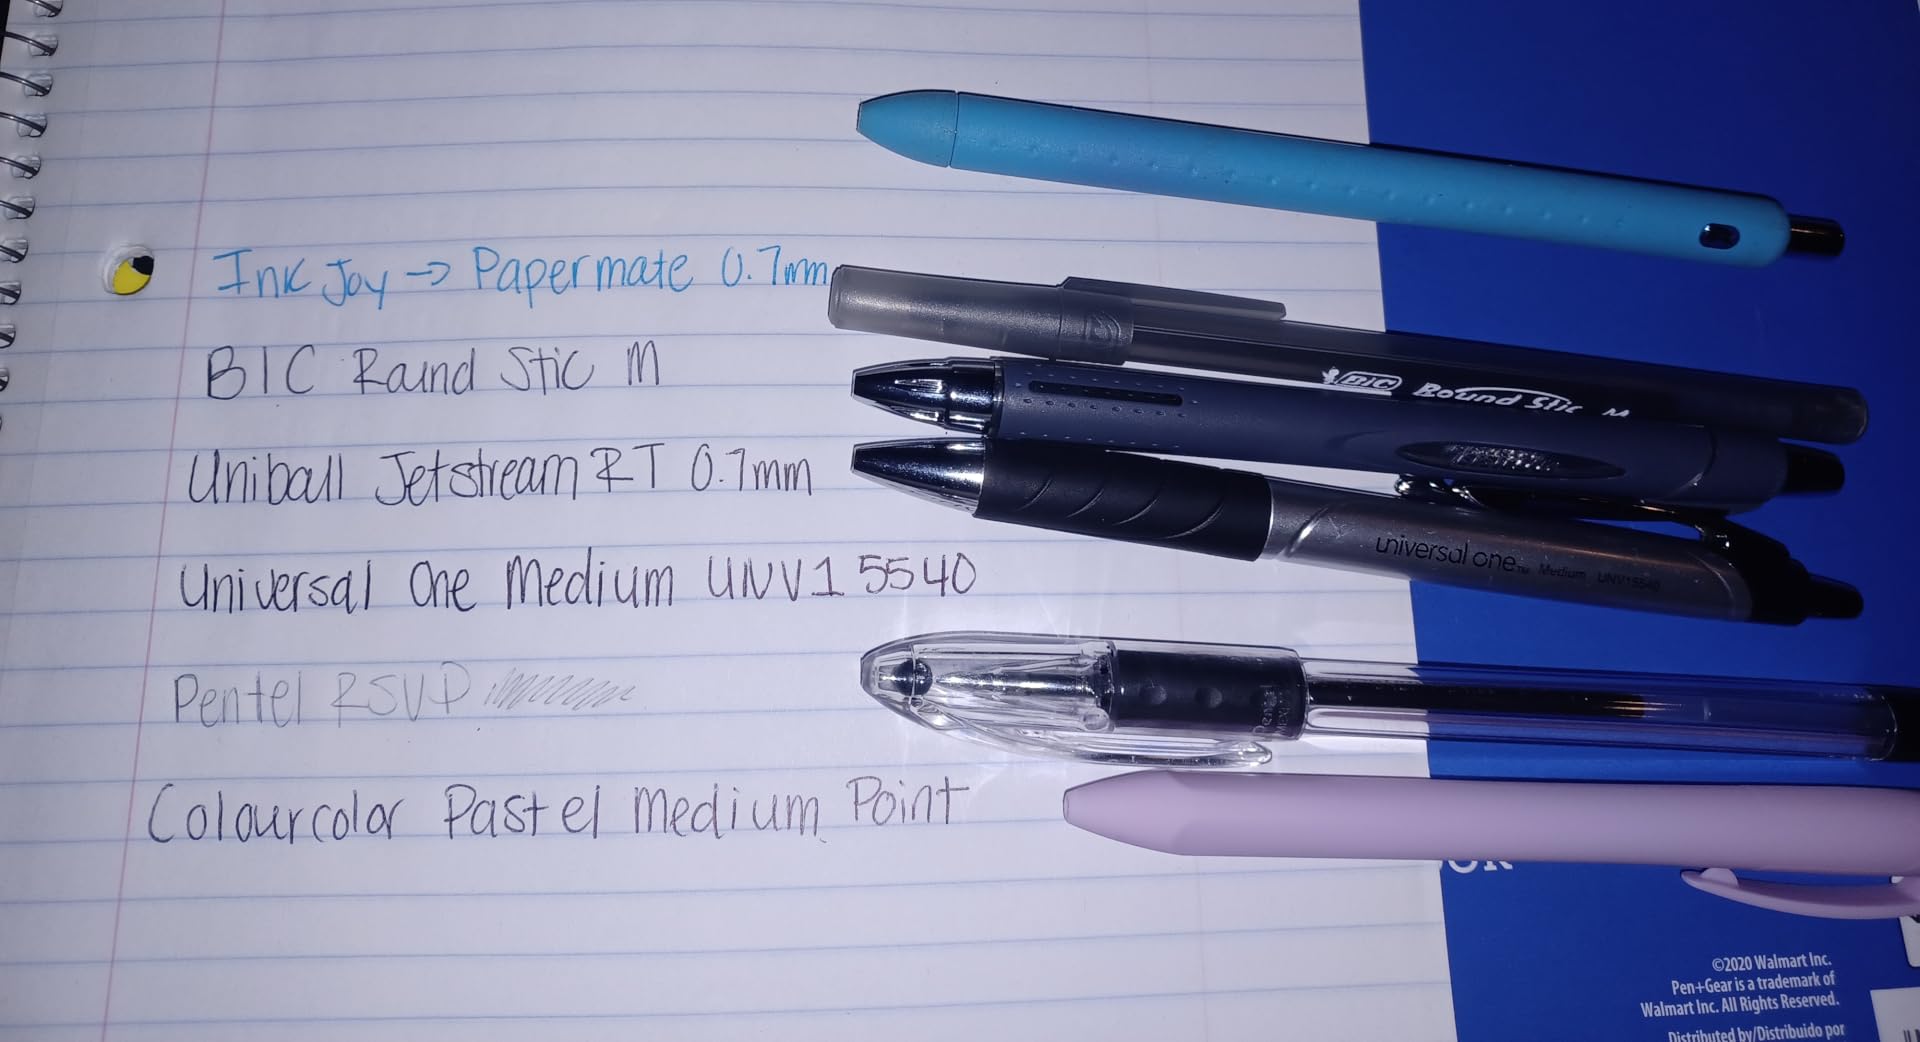 Ink Joy → Papermate 0.7mm
BIC Round Stic M
Uniball Jetstream RT 0.7mm
Universal One Medium UNV15540
Pentel RSVP
Colourcolor Pastel Medium Point
BIC Round Stic M
universal one™ Medium UNV15540
©2020 Walmart Inc.
Pen+Gear is a trademark of
Walmart Inc. All Rights Reserved.
Distributed by/Distribuido por